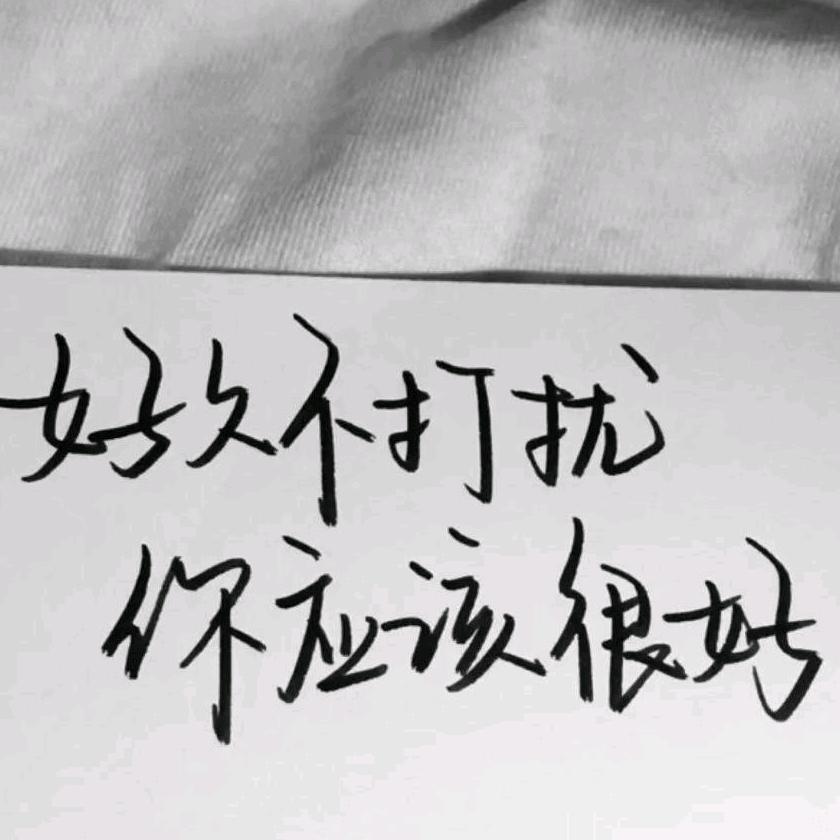 好久不打扰
你应该很好